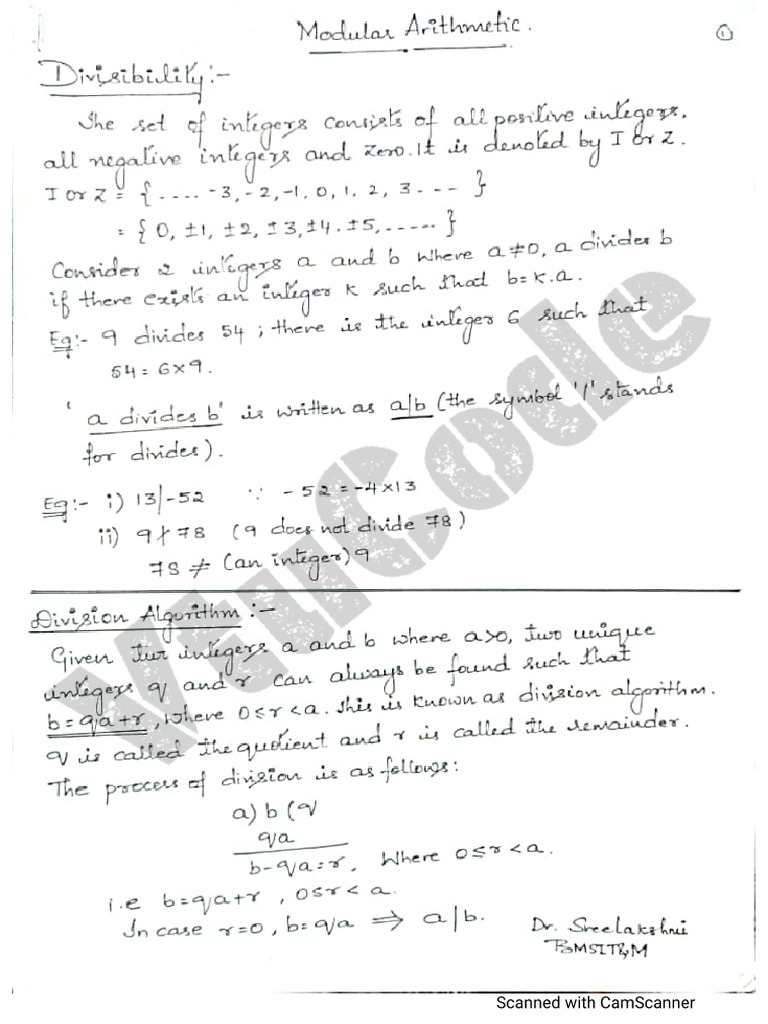 Modular Arithmetic.
1
Divisibility:-
The set of integers consists of all positive integers.
all negative integers and zero. It is denoted by I or Z.
I or Z = { .... -3, -2, -1, 0, 1, 2, 3 - - - }
= { 0, ±1, ±2, ±3, ±4, ±5, ...... }
Consider 2 integers a and b where a≠0, a divides b
if there exists an integer k such that b = k.a.
Eg:- 9 divides 54 ; there is the integer 6 such that
54 = 6×9.
'a divides b' is written as a/b (the symbol '/' stands
for divides).
Eg:- i) 13/-52 ∵ -52 = -4×13
ii) 9∤78 (9 does not divide 78)
78 ≠ (an integer) 9
Division Algorithm :-
Given two integers a and b where a>0, two unique
integers q and r can always be found such that
b = qa+r, where 0≤r<a. This is known as division algorithm.
q is called the quotient and r is called the remainder.
The process of division is as follows:
a) b (q
qa
b-qa=r, Where 0≤r<a.
i.e b=qa+r, 0≤r<a.
In case r=0, b=qa ⇒ a|b.
Dr. Sreelakshmi
BMSIT&M
VTUCode
Scanned with CamScanner